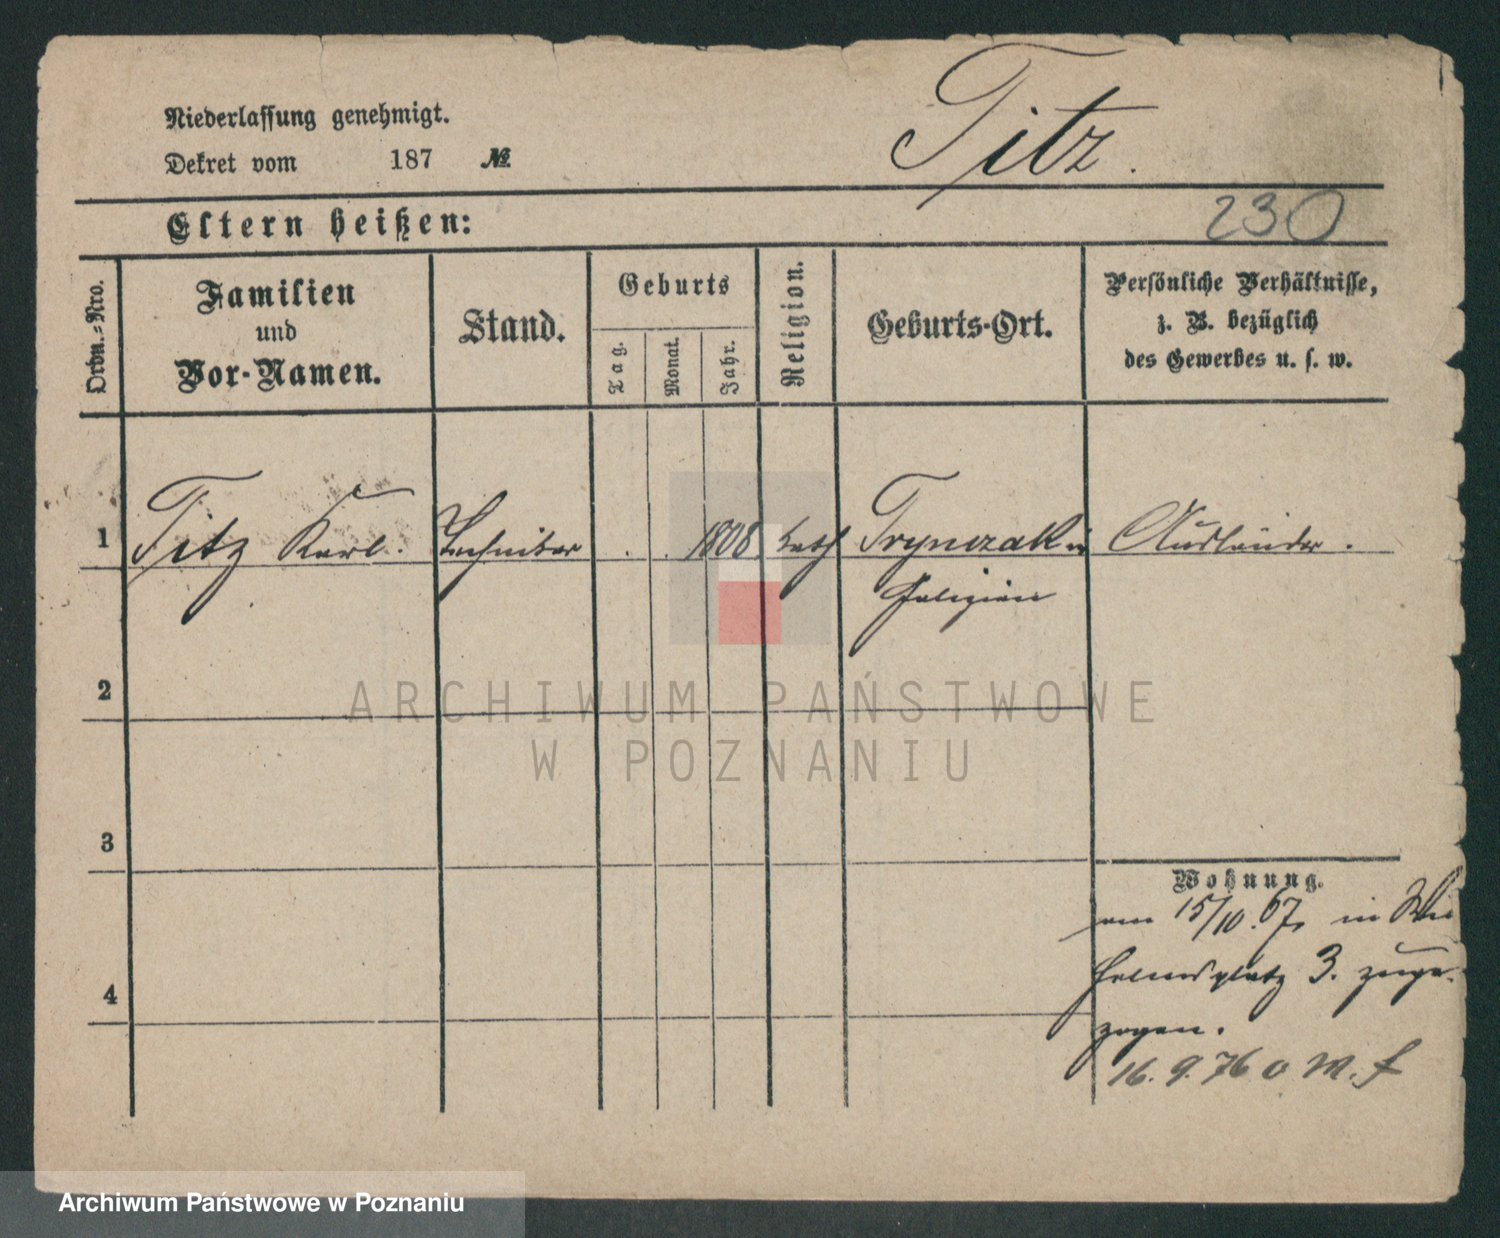 Niederlassung genehmigt.
Dekret vom 187 №
Titz.
Eltern heißen:
230
Ordn.-Nro.
Familien
und
Vor-Namen.
Stand.
Geburts
Tag.
Monat.
Jahr.
Religion.
Geburts-Ort.
Persönliche Verhältnisse,
z. B. bezüglich
des Gewerbes u. s. w.
1 Titz Karl. Techniker . . 1808 kath Trynczak in Ausländer.
Galizien
2
3
4
Wohnung.
am 15/10. 67. in Wil
helmsplatz 3. zuge-
zogen.
16. 9. 76 o M. f
ARCHIWUM PAŃSTWOWE
W POZNANIU
Archiwum Państwowe w Poznaniu